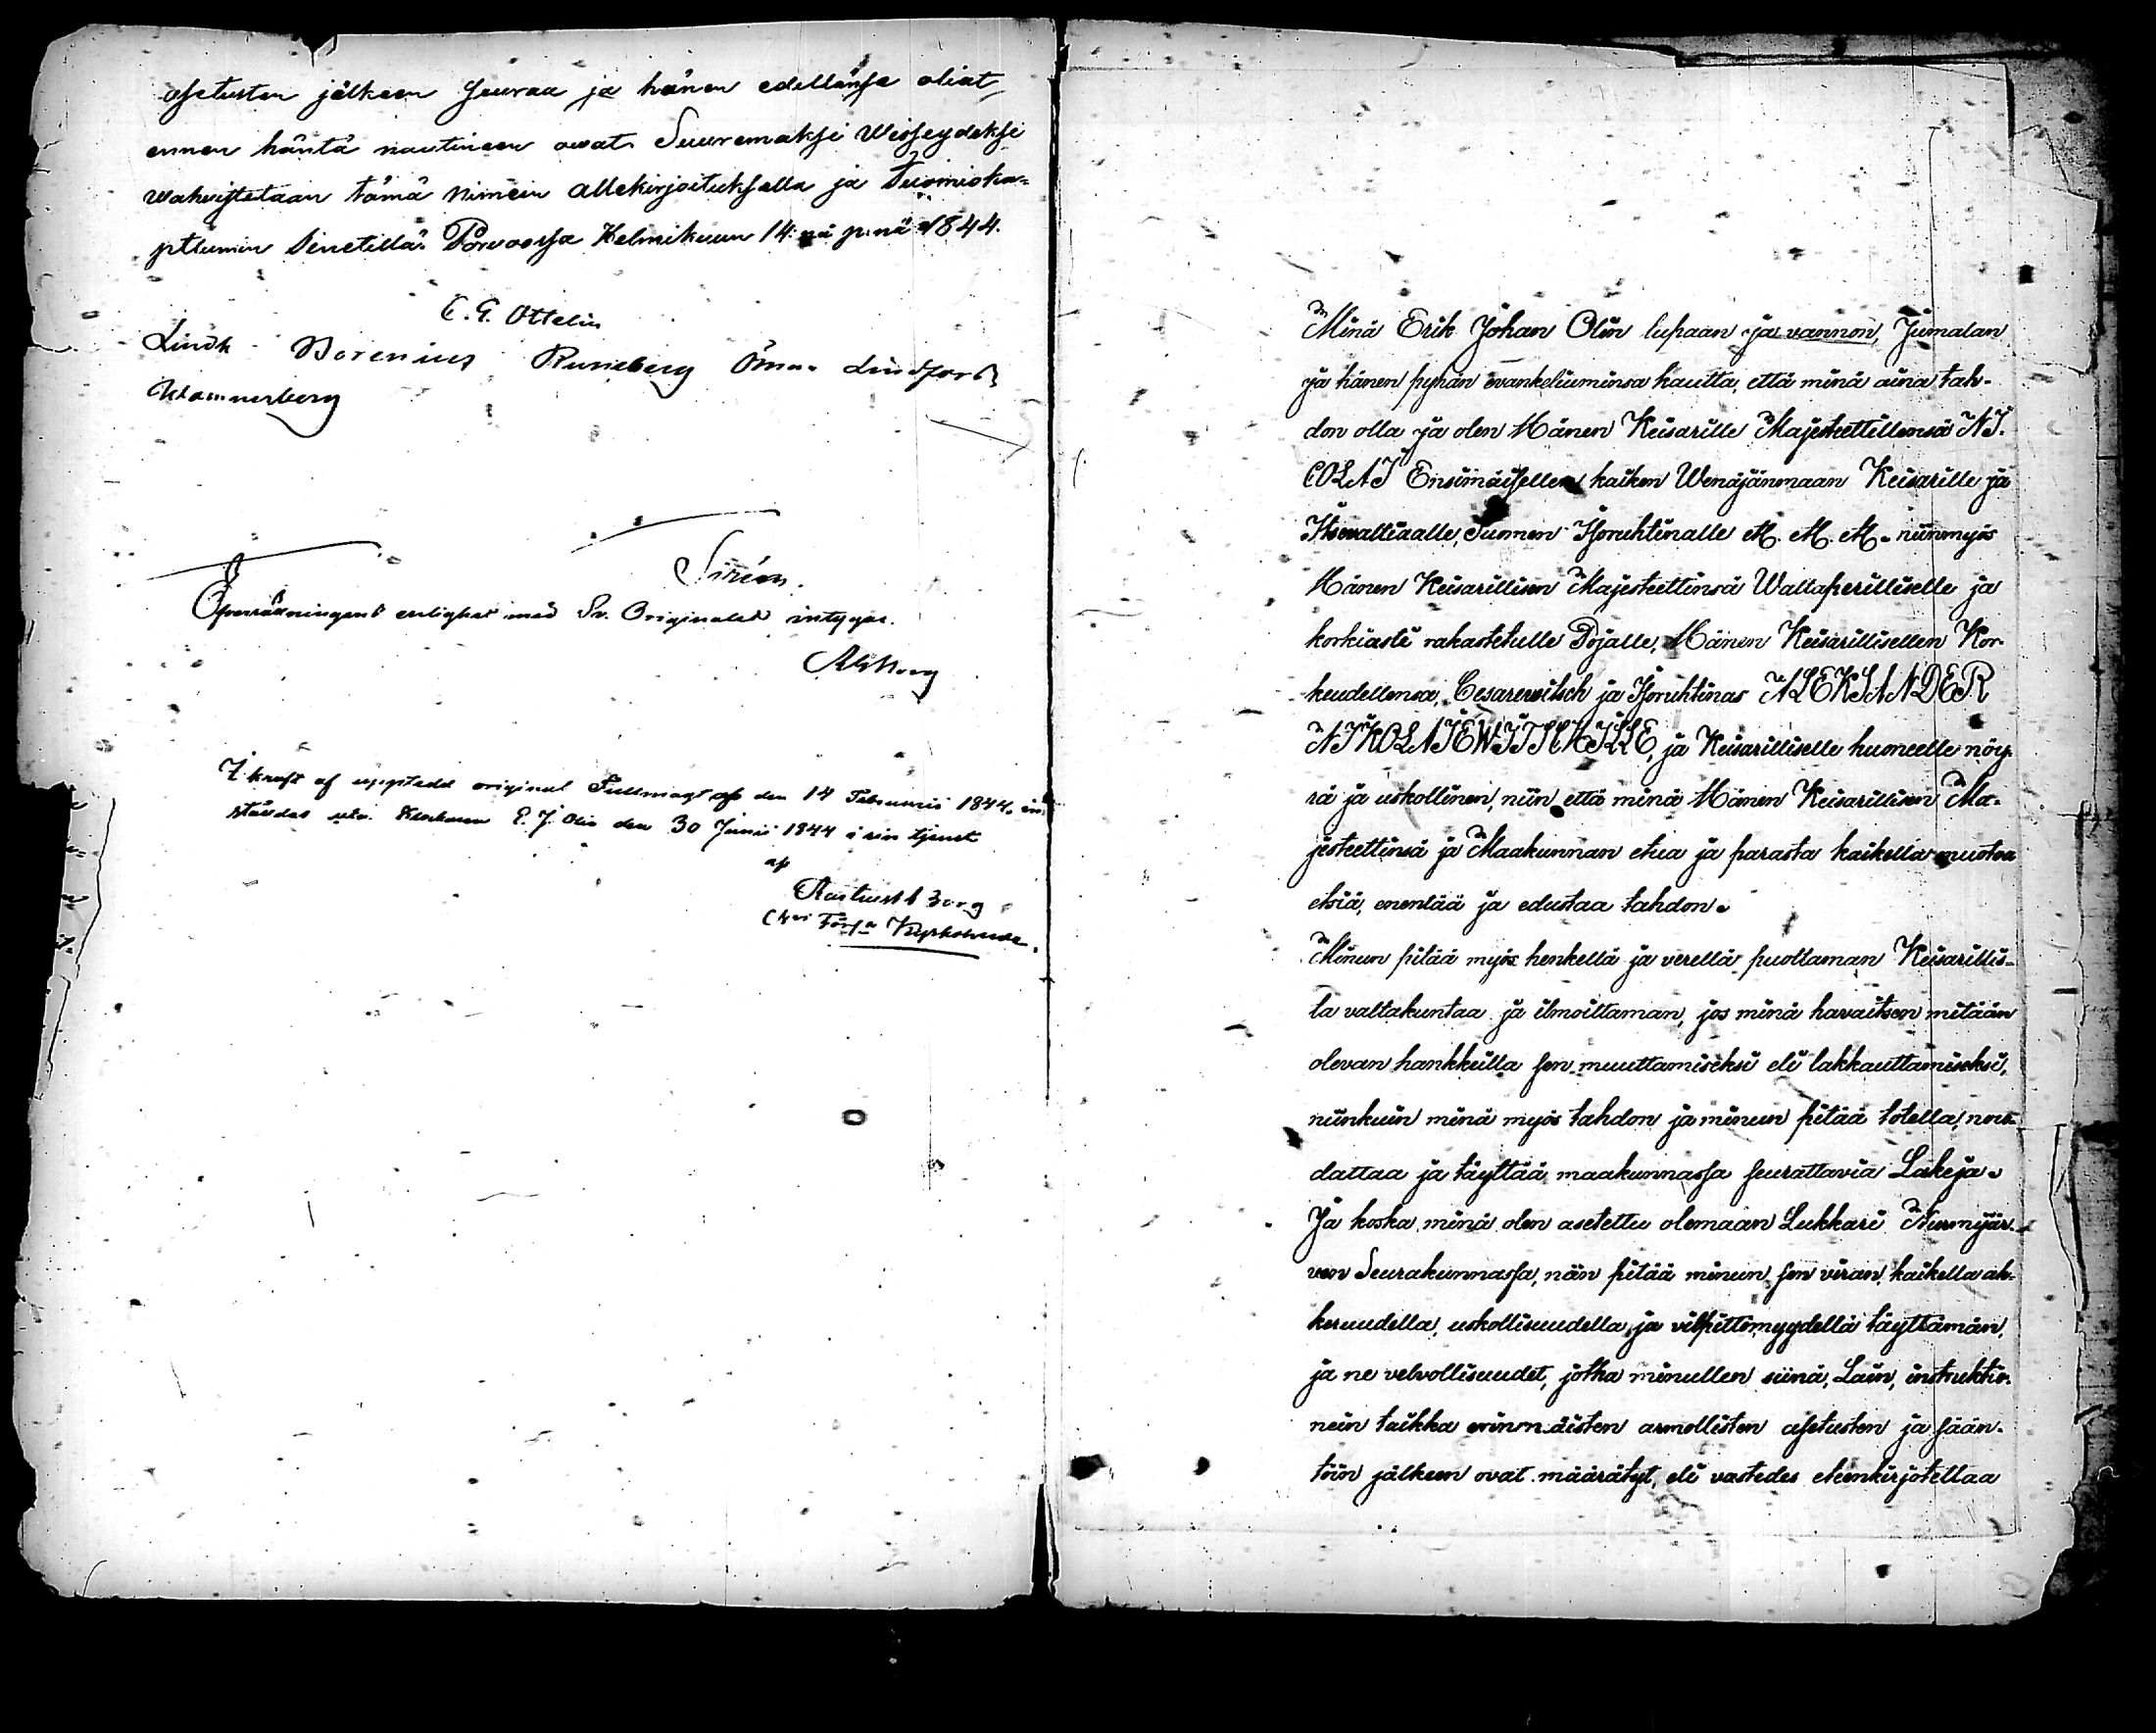 asetusten jälkeen seuraa ja hänen edellänsä oliat
ennen häntä nautineen owat. Suuremaksi Wisseydeksi
wahwistetaan tämä nimein allekirjoituksella ja Tuomioka-
pitlumin Sinetillä. Porwoossa Helmikuun 14:nä p:nä 1844.
C. G. Ottelin
Lindh Borenius Runeberg Öman Lindfors
Wannerberg
Sirén.
Öfversättningens enlighet med Sv. Originalet intygas.
I kraft af uppteedd original Fullmagt af den 14 Februarii 1844, in-
städes Klockaren E. J. Olin den 30 Junii 1844 i sin tjenst
af
Borg
Minä Erik Johan Olin lupaan ja vannon, Jumalan
ja hänen pyhän evankeliuminsa kautta, että minä aina tah-
don olla ja olen Hänen Keisarille Majesteetillensä NI-
COLAI Ensimäisellen kaiken Wenäjänmaan Keisarille ja
Itsevaltiaalle, Suomen Isoruhtinalle M. M. M. niinmyös
Hänen Keisarillisen Majesteettinsä Waltaperilliselle ja
korkiasti rakastetulle Pojalle, Hänen Keisarillisellen Kor-
keudellensa, Cesarewitsch ja Isoruhtinas ALEKSANDER
NIKOLAJEWITSCHILLE, ja Keisarilliselle huoneelle nöy-
rä ja uskollinen, niin että minä Hänen Keisarillisen Ma-
jesteettinsä ja Maakunnan etua ja parasta kaikella muotoa
etsiä, enentää ja edustaa tahdon.
Minun pitää myös henkellä ja verellä puoltaman Keisarillis-
ta valtakuntaa ja ilmoittaman, jos minä havaitsen mitään
olevan hankkeilla sen muuttamiseksi eli lakkauttamiseksi,
niinkuin minä myös tahdon ja minun pitää totella, nou-
dattaa ja täyttää maakunnassa seurattavia Lakeja.
Ja koska minä olen asetettu olemaan Lukkari Nurmijär-
ven Seurakunnassa, niin pitää minun sen viran kaikella ah-
keruudella, uskollisuudella ja vilpittömyydellä täyttämän,
ja ne velvollisuudet, jotka minullen siinä, Lain, instruktio-
nein taikka erinomaisten armollisten asetusten ja sään-
töin jälkeen ovat määrätyt, eli vastedes etenkirjotellaa